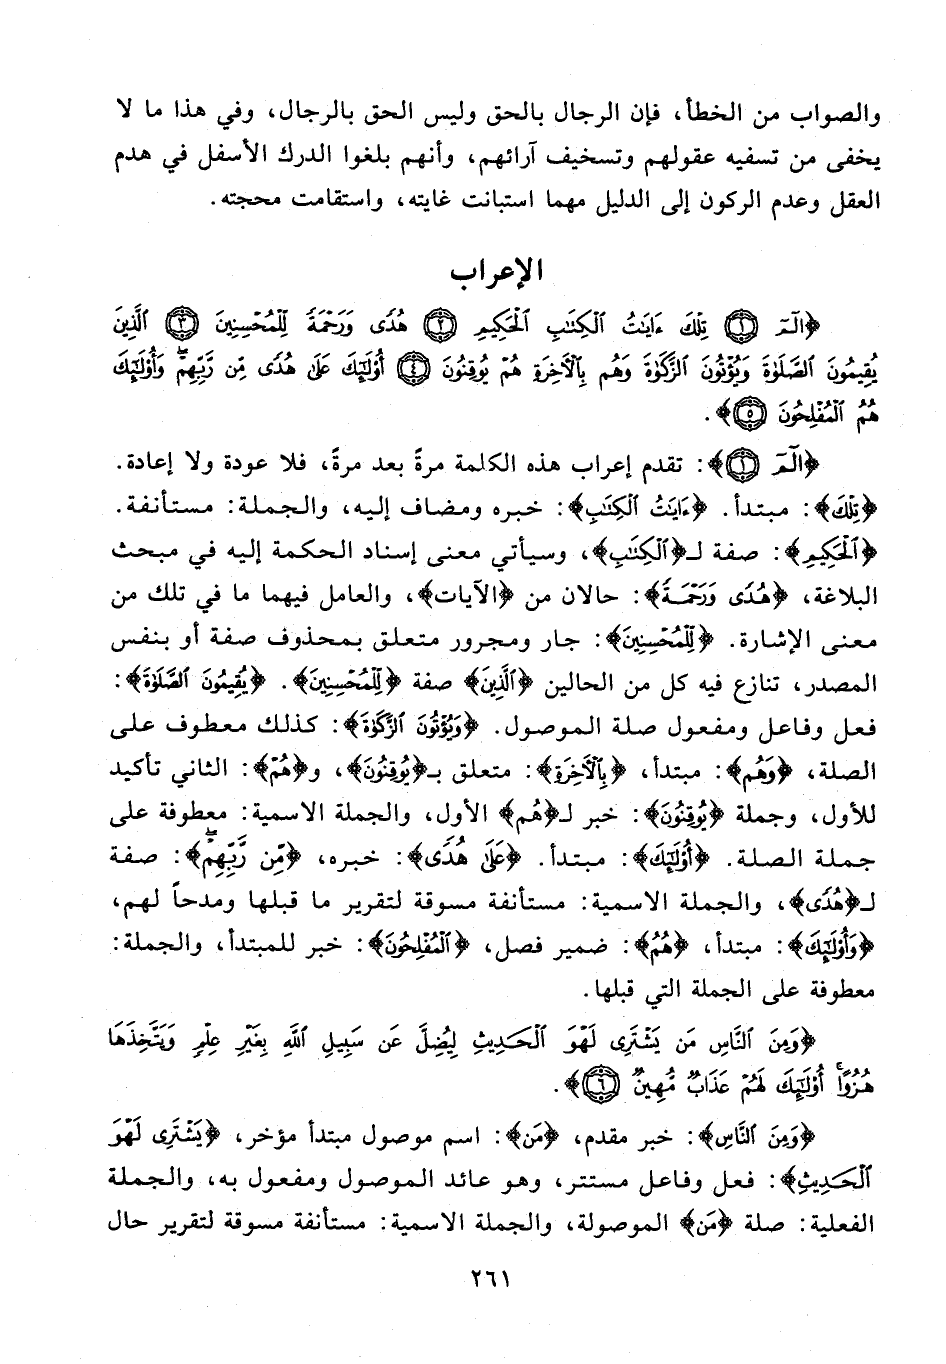 والصواب من الخطأ، فإن الرجال بالحق وليس الحق بالرجال، وفي هذا ما لا
يخفى من تسفيه عقولهم وتسخيف آرائهم، وأنهم بلغوا الدرك الأسفل في هدم
العقل وعدم الركون إلى الدليل مهما استبانت غايته، واستقامت محجته.
الإعراب
﴿الٓمٓ ١ تِلْكَ ءَايَٰتُ ٱلْكِتَٰبِ ٱلْحَكِيمِ ٢ هُدًى وَرَحْمَةً لِّلْمُحْسِنِينَ ٣ ٱلَّذِينَ
يُقِيمُونَ ٱلصَّلَوٰةَ وَيُؤْتُونَ ٱلزَّكَوٰةَ وَهُم بِٱلْءَاخِرَةِ هُمْ يُوقِنُونَ ٤ أُوْلَٰٓئِكَ عَلَىٰ هُدًى مِّن رَّبِّهِمْ ۖ وَأُوْلَٰٓئِكَ
هُمُ ٱلْمُفْلِحُونَ ٥﴾.
﴿الٓمٓ ١﴾: تقدم إعراب هذه الكلمة مرةً بعد مرةً، فلا عودة ولا إعادة.
﴿تِلْكَ﴾: مبتدأ. ﴿ءَايَٰتُ ٱلْكِتَٰبِ﴾: خبره ومضاف إليه، والجملة: مستأنفة.
﴿ٱلْحَكِيمِ﴾: صفة لـ﴿ٱلْكِتَٰبِ﴾، وسيأتي معنى إسناد الحكمة إليه في مبحث
البلاغة، ﴿هُدًى وَرَحْمَةً﴾: حالان من ﴿الآيات﴾، والعامل فيهما ما في تلك من
معنى الإشارة. ﴿لِّلْمُحْسِنِينَ﴾: جار ومجرور متعلق بمحذوف صفة أو بنفس
المصدر، تنازع فيه كل من الحالين ﴿ٱلَّذِينَ﴾ صفة ﴿لِّلْمُحْسِنِينَ﴾. ﴿يُقِيمُونَ ٱلصَّلَوٰةَ﴾:
فعل وفاعل ومفعول صلة الموصول. ﴿وَيُؤْتُونَ ٱلزَّكَوٰةَ﴾: كذلك معطوف على
الصلة، ﴿وَهُم﴾: مبتدأ، ﴿بِٱلْءَاخِرَةِ﴾: متعلق بـ﴿يُوقِنُونَ﴾، و﴿هُمْ﴾: الثاني تأكيد
للأول، وجملة ﴿يُوقِنُونَ﴾: خبر لـ﴿هُم﴾ الأول، والجملة الاسمية: معطوفة على
جملة الصلة. ﴿أُوْلَٰٓئِكَ﴾: مبتدأ. ﴿عَلَىٰ هُدًى﴾: خبره، ﴿مِّن رَّبِّهِمْ ۖ﴾: صفة
لـ﴿هُدًى﴾، والجملة الاسمية: مستأنفة مسوقة لتقرير ما قبلها ومدحاً لهم،
﴿وَأُوْلَٰٓئِكَ﴾: مبتدأ، ﴿هُمُ﴾: ضمير فصل، ﴿ٱلْمُفْلِحُونَ﴾: خبر للمبتدأ، والجملة:
معطوفة على الجملة التي قبلها.
﴿وَمِنَ ٱلنَّاسِ مَن يَشْتَرِى لَهْوَ ٱلْحَدِيثِ لِيُضِلَّ عَن سَبِيلِ ٱللَّهِ بِغَيْرِ عِلْمٍ وَيَتَّخِذَهَا
هُزُوًا ۚ أُوْلَٰٓئِكَ لَهُمْ عَذَابٌ مُّهِينٌ ٦﴾.
﴿وَمِنَ ٱلنَّاسِ﴾: خبر مقدم، ﴿مَن﴾: اسم موصول مبتدأ مؤخر، ﴿يَشْتَرِى لَهْوَ
ٱلْحَدِيثِ﴾: فعل وفاعل مستتر، وهو عائد الموصول ومفعول به، والجملة
الفعلية: صلة ﴿مَن﴾ الموصولة، والجملة الاسمية: مستأنفة مسوقة لتقرير حال
٢٦١